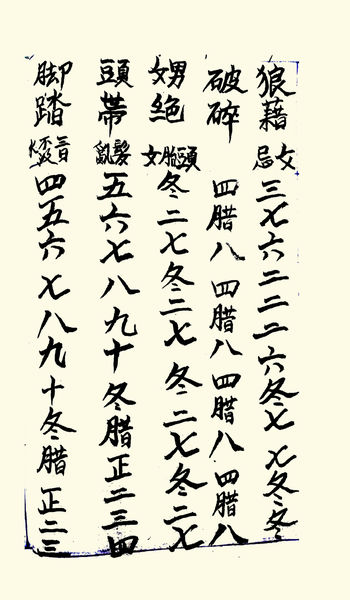 狼藉 女忌 三七六二二二六冬七七冬冬
破碎 四腊八四腊八四腊八四腊八
男女絶 頭胎女 冬二七冬二七冬二七冬二七
頭帶 髮亂 五六七八九十冬腊正二三四
脚踏 四五六七八九十冬腊正二三